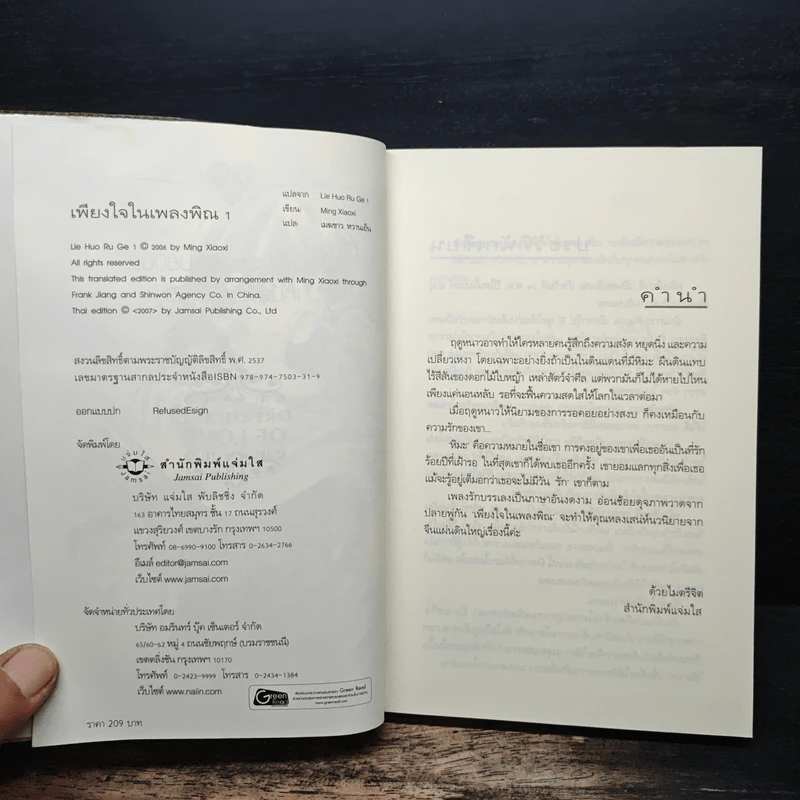 เพียงใจในเพลงพิณ 1
แปลจาก Lie Huo Ru Ge 1
เขียน Ming Xiaoxi
แปล เมฆขาว หวานเย็น
Lie Huo Ru Ge 1 © 2006 by Ming Xiaoxi
All rights reserved
This translated edition is published by arrangement with Ming Xiaoxi through
Frank Jiang and Shinwon Agency Co. in China.
Thai edition © <2007> by Jamsai Publishing Co., Ltd
สงวนลิขสิทธิ์ตามพระราชบัญญัติลิขสิทธิ์ พ.ศ. 2537
เลขมาตรฐานสากลประจำหนังสือISBN 978-974-7503-31-9
ออกแบบปก RefusedEsign
จัดพิมพ์โดย
แจ่มใส
Jamsai
สำนักพิมพ์แจ่มใส
Jamsai Publishing
บริษัท แจ่มใส พับลิชชิ่ง จำกัด
163 อาคารไทยสมุทร ชั้น 17 ถนนสุรวงศ์
แขวงสุริยวงศ์ เขตบางรัก กรุงเทพฯ 10500
โทรศัพท์ 08-6990-9100 โทรสาร 0-2634-2766
อีเมล์ editor@jamsai.com
เว็บไซต์ www.jamsai.com
จัดจำหน่ายทั่วประเทศโดย
บริษัท อมรินทร์ บุ๊ค เซ็นเตอร์ จำกัด
65/60-62 หมู่ 4 ถนนชัยพฤกษ์ (บรมราชชนนี)
เขตตลิ่งชัน กรุงเทพฯ 10170
โทรศัพท์ 0-2423-9999 โทรสาร 0-2434-1384
เว็บไซต์ www.naiin.com
Green
Read
ราคา 209 บาท
คำนำ
ฤดูหนาวอาจทำให้ใครหลายคนรู้สึกถึงความสงัด หยุดนิ่ง และความ
เปลี่ยวเหงา โดยเฉพาะอย่างยิ่งถ้าเป็นในดินแดนที่มีหิมะ ผืนดินแทบ
ไร้สีสันของดอกไม้ใบหญ้า เหล่าสัตว์จำศีล แต่พวกมันก็ไม่ได้หายไปไหน
เพียงแค่นอนหลับ รอที่จะฟื้นความสดใสให้โลกในเวลาต่อมา
เมื่อฤดูหนาวให้นิยามของการรอคอยอย่างสงบ ก็คงเหมือนกับ
ความรักของเขา...
'หิมะ' คือความหมายในชื่อเขา การคงอยู่ของเขาเพื่อเธออันเป็นที่รัก
ร้อยปีที่เฝ้ารอ ในที่สุดเขาก็ได้พบเธออีกครั้ง เขายอมแลกทุกสิ่งเพื่อเธอ
แม้จะรู้อยู่เต็มอกว่าเธอจะไม่มีวัน 'รัก' เขาก็ตาม
เพลงรักบรรเลงเป็นภาษาอันงดงาม อ่อนช้อยดุจภาพวาดจาก
ปลายพู่กัน 'เพียงใจในเพลงพิณ' จะทำให้คุณหลงเสน่ห์นวนิยายจาก
จีนแผ่นดินใหญ่เรื่องนี้ค่ะ
ด้วยไมตรีจิต
สำนักพิมพ์แจ่มใส